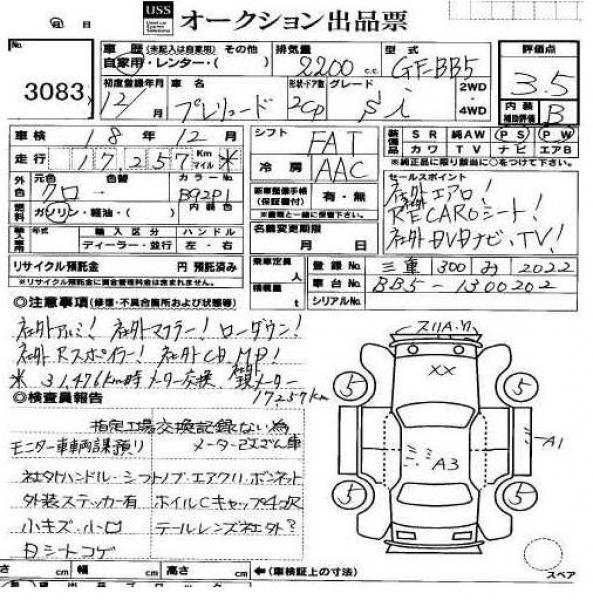 月 日
USS オークション出品票
No. 3083
車歴 (未記入は自家用) その他
自家用・レンター・( )
排気量 2200 c.c.
型式 GF-BB5
評価点 3.5
内装補助評価 B
初度登録年月 12/ 月
車名 プレリュード
形状・ドア数 2CP
グレード Si
2WD
4WD
車検 18年 12月
シフト FAT
装備品 SR 純AW PS PW
カワ TV ナビ エアB
※純正品に限り該当に○をつけて下さい。
走行 17257 Km マイル ※
冷房 AAC
外色 元色 クロ 色替 カラーNo. B92P1
新車整備手帳(保証書付) 有・無
※書類と一緒に保管下さい。
セールスポイント
社外エアロ!
RECAROシート!
社外DVDナビ、TV!
燃料 ガソリン・軽油・( ) 内装色
輸入車 年式 輸入区分 ハンドル
ディーラー・並行 左・右
名義変更期限 月 日
リサイクル預託金 円 預託済み
※リサイクル預託金に資金管理料金は含まれません。
乗車定員 人
積載量 t
登録No. 三重 300 み 2022
車台No. BB5-1300202
シリアルNo.
◎注意事項(修復・不具合箇所および状態等)
社外アルミ! 社外マフラー! ローダウン!
社外Rスポイラー! 社外CD,MD!
※31,476km時メーター交換、現メーター
17257km
◎検査員報告
指定工場交換記録ない為
モニター車車両課預り メーター改ざん車
社外ハンドル・シフトノブ・エアクリ・ボンネット
外装ステッカー有 ホイルCキャップ4ヶ欠
小キズ・小凹 テールレンズ社外?
Dシートコゲ
スリA・ワレ
XX
5
5
A3
A1
5
5
スペア
さ cm 幅 cm 高さ cm ←(車検証上の寸法)